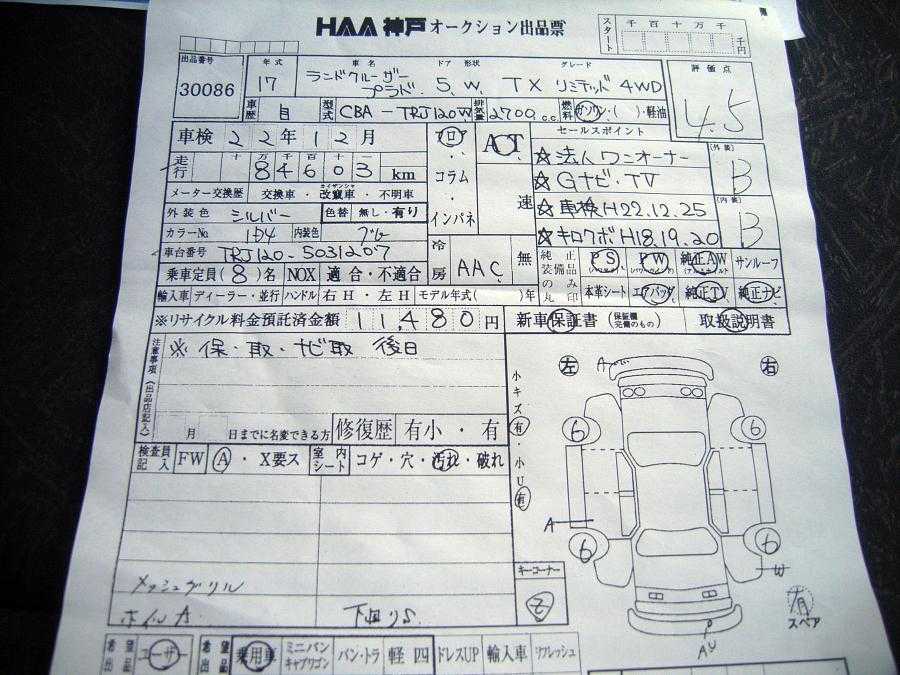 HAA神戸 オークション出品票
スタート 千 百 十 万 千 千円
出品番号 30086
年式 17
車名 ランドクルーザー プラド
ドア 形状 5.W.
グレード TX リミテッド 4WD
評価点 4.5
車歴 自
型式 CBA-TRJ120W
排気量 2700 c.c.
燃料 ガソリン・( )・軽油
車検 22年12月
走行 十 万 千 百 十 一
84603 km
メーター交換歴 交換車・改竄車・不明車
外装色 シルバー 色替 無し・有り
カラーNo. 1D4 内装色 グレー
車台番号 TRJ120-5031207
乗車定員(8)名 NOX 適合・不適合
輸入車 ディーラー・並行 ハンドル 右H・左H モデル年式( )年
※リサイクル料金預託済金額 11,480円
ロ・コラム・インパネ
AOT 速
冷房 AAC 無
セールスポイント
☆法人ワンオーナー
☆Gナビ・TV
☆車検H22.12.25
☆キロクボH18.19.20
(外装) B
(内装) B
純正装備品のみ丸印
PS PW 純正AW サンルーフ
本革シート エアバッグ 純正TV 純正ナビ
新車保証書 (保証欄完備のもの) 取扱説明書
注意事項(出品店記入)
※保・取・ナビ取 後日
月 日までに名変できる方
修復歴 有小・有
検査員記入 FW A・X要ス
室内シート コゲ・穴・汚れ・破れ
小キズ有・小U有
左 右
A
6 6
A
6 6
W
P
AU
有 スペア
キーコーナー
メッシュグリル
ホイルA 下回りS
希望出品 ユーザー
希望出品 乗用車 ミニバンキャブワゴン バン・トラ 軽四 ドレスUP 輸入車 リフレッシュ